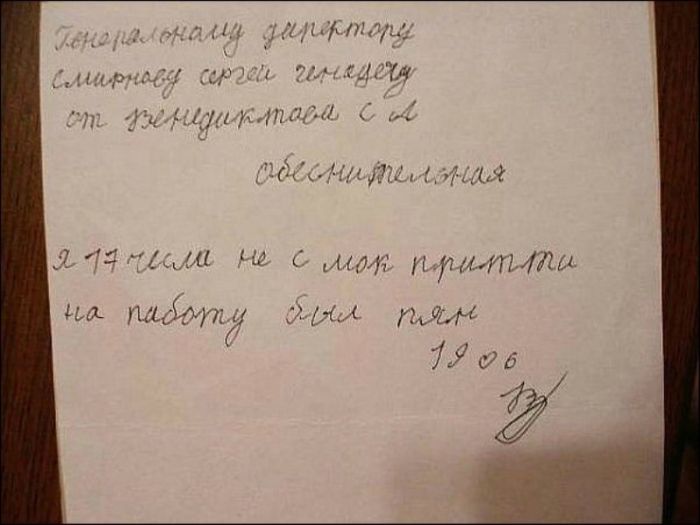 Генеральному директору
смирнову сергей генадечу
от Венедиктова С А
обеснительная
я 17 чесла не с мок притти
на паботу был пян
19 06